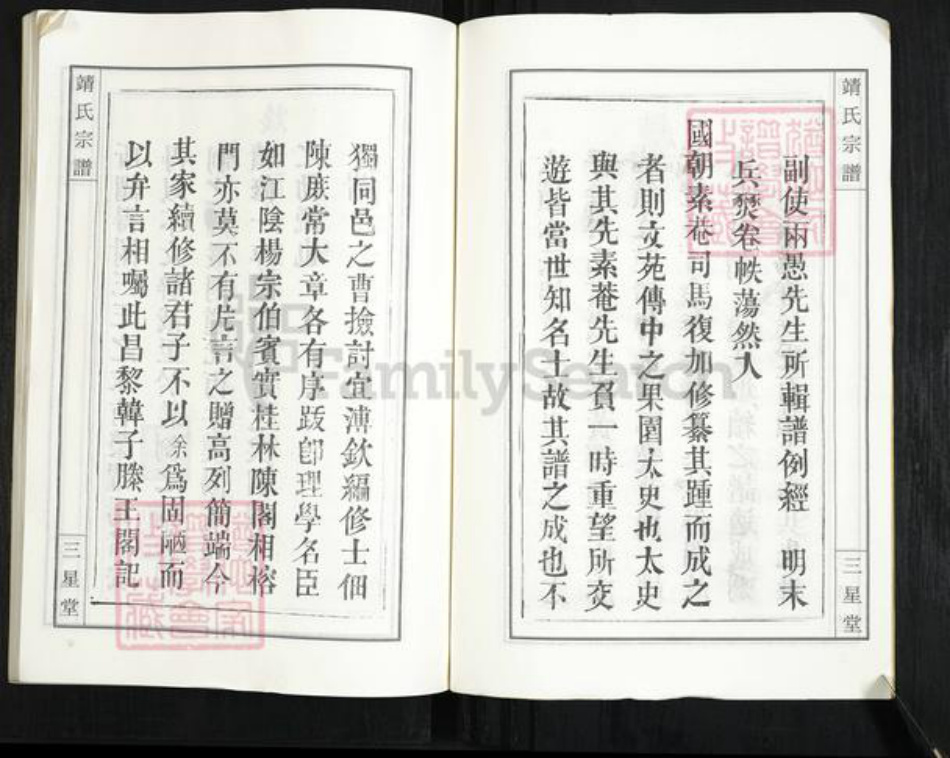 靖氏宗譜
三星堂
副使兩愚先生所輯譜例經 明末
兵燹卷帙蕩然入
國朝素菴司馬復加修纂其踵而成之
者則文苑傳中之果園太史也太史
與其先素菴先生負一時重望所交
遊皆當世知名士故其譜之成也不
獨同邑之曹撿討宜溥欽編修士佃
陳庶常大章各有序跋卽理學名臣
如江陰楊宗伯賓實桂林陳閣相榕
門亦莫不有片言之贈高列簡端今
其家續修諸君子不以余爲固陋而
以弁言相囑此昌黎韓子滕王閣記
靖氏宗譜
三星堂
FamilySearch